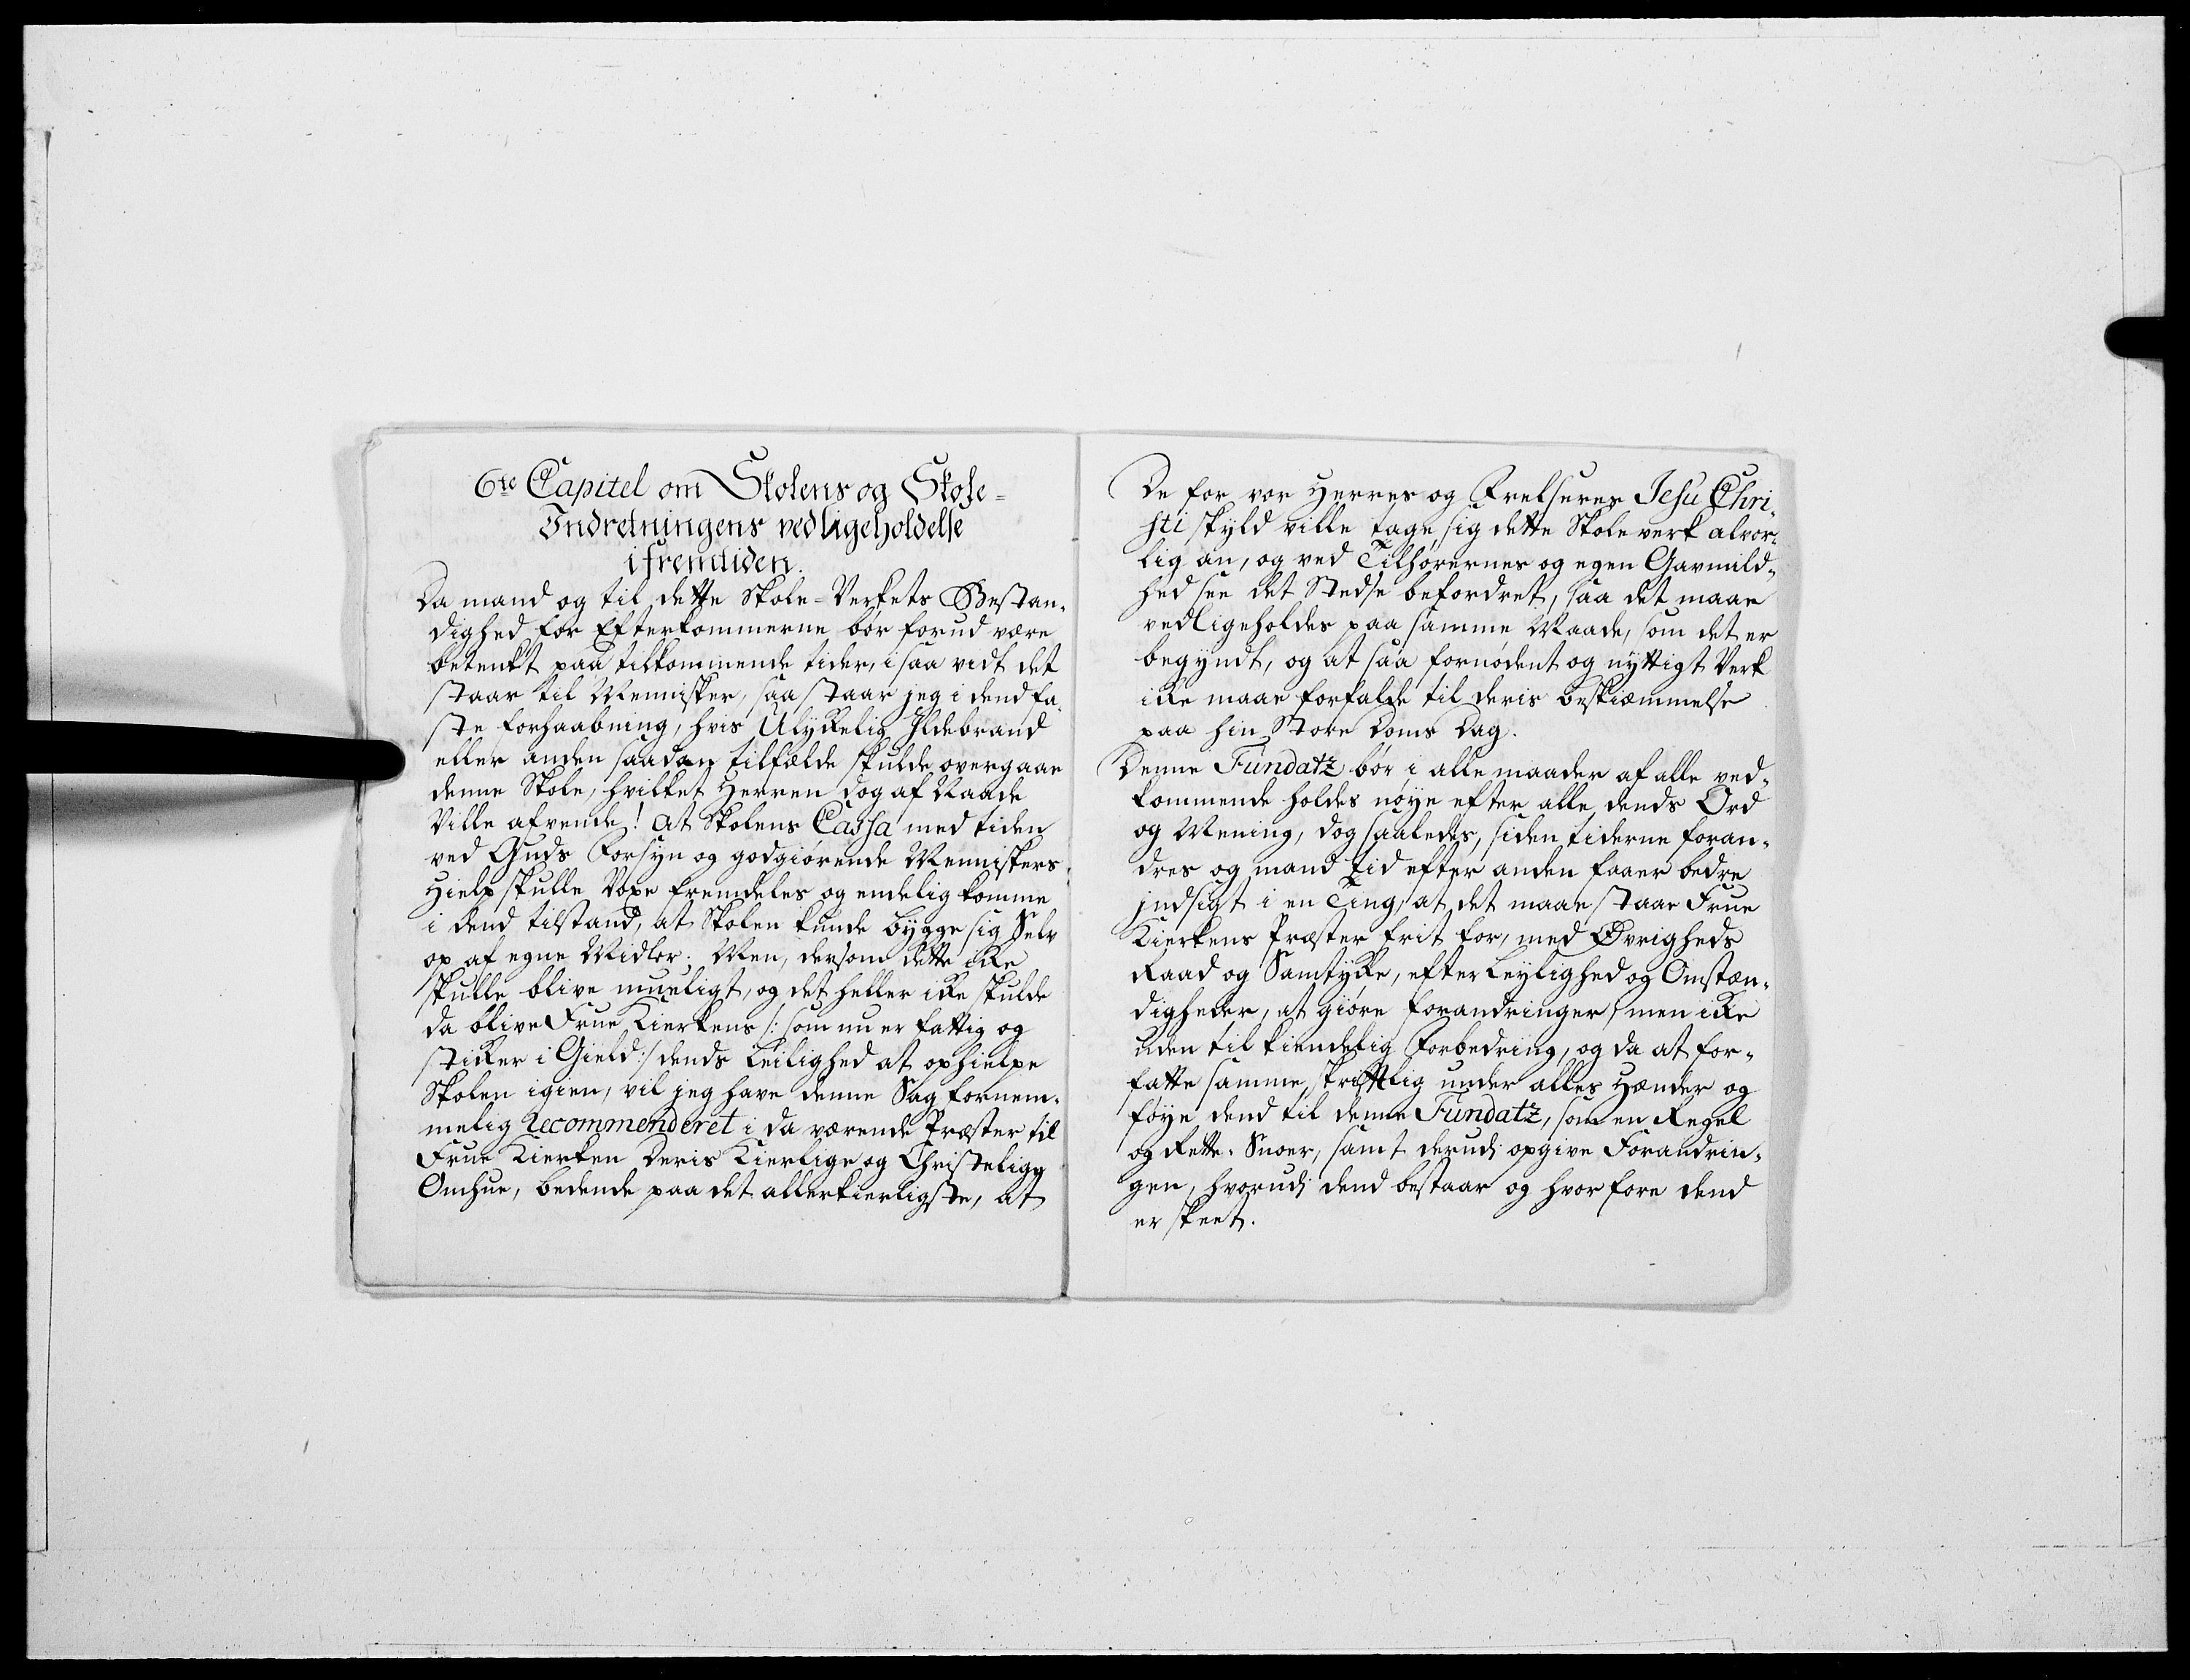 6te Capitel om Skolens og Skole=
Indretningens vedligeholdelse
i fremtiden.
Da mand og til dette Skole-Verkets Bestan-
dighed for Efterkommerne bør forud være
betenkt paa tilkommende tider, i saa vidt det
staar til Mennisker, saa staar jeg i dend fa-
ste forhaabning, hvis Ulykkelig Ildebrand
eller anden saadan tilfælde skulde overgaae
denne Skole, hvilket Herren dog af Naade
Ville afvende! at Skolens Cassa med tiden
ved Guds Forsyn og godgiørende Menniskers
Hielp skulle Voxe fremdeles og endelig komme
i dend tilstand, at Skolen kunde bygge sig Selv
op af egne Midler. Men, dersom dette ikke
skulle blive mueligt, og det heller ikke skulde
da blive Frue Kierkens /: som nu er fattig og
stikker i Gield :/ dends Leilighed at ophielpe
Skolen igien, vil jeg have denne Sag fornem-
melig Recommenderet i da værende Præster til
Frue Kierken Deris Kierlige og Christelige
Omhue, bedende paa det allerkierligste, at
De for vor Herres og Frelseres Jesu Chri-
sti skyld ville tage sig dette Skoleverk alvor-
lig an, og ved Tilhørernes og egen Gavmild-
hed see det Stedse befordret, saa det maae
vedligeholdes paa samme Maade, som det er
begyndt, og at saa fornødent og nyttigt Verk
ikke maae forfalde til deris beskiæmmelse
paa hin Store Doms Dag.
Denne Fundatz bør i alle maader af alle ved-
kommende holdes nøye efter alle dends Ord
og Mening, dog saaledes, siden tiderne foran-
dres og mand tid efter anden faaer bedre
jndsigt i en Ting, at det maae staae Frue
Kierkens Præster frit for, med Øvrigheds
Raad og Samtykke, efter Leylighed og Omstæn-
digheder, at giøre forandringer, men ikke
uden til kiendelig Forbedring, og da at for-
fatte samme skriftlig under alles Hænder og
føye dend til denne Fundatz, som en Regel
og Rette-Snoer, samt derudi opgive Forandrin-
gen, hvorudi dend bestaar og hvorfore dend
er skeet.